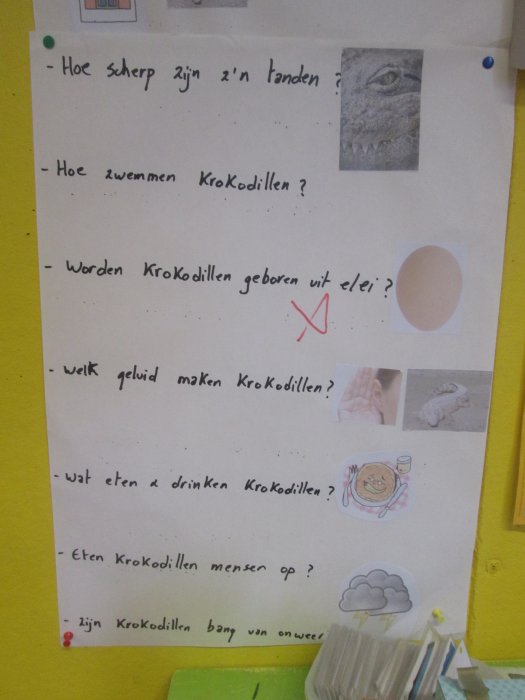 - Hoe scherp zijn z'n tanden ?
- Hoe zwemmen Krokodillen ?
- Worden Krokodillen geboren uit e/ei ?
- welk geluid maken Krokodillen ?
- wat eten & drinken Krokodillen ?
- Eten Krokodillen mensen op ?
- Zijn Krokodillen bang van onweer